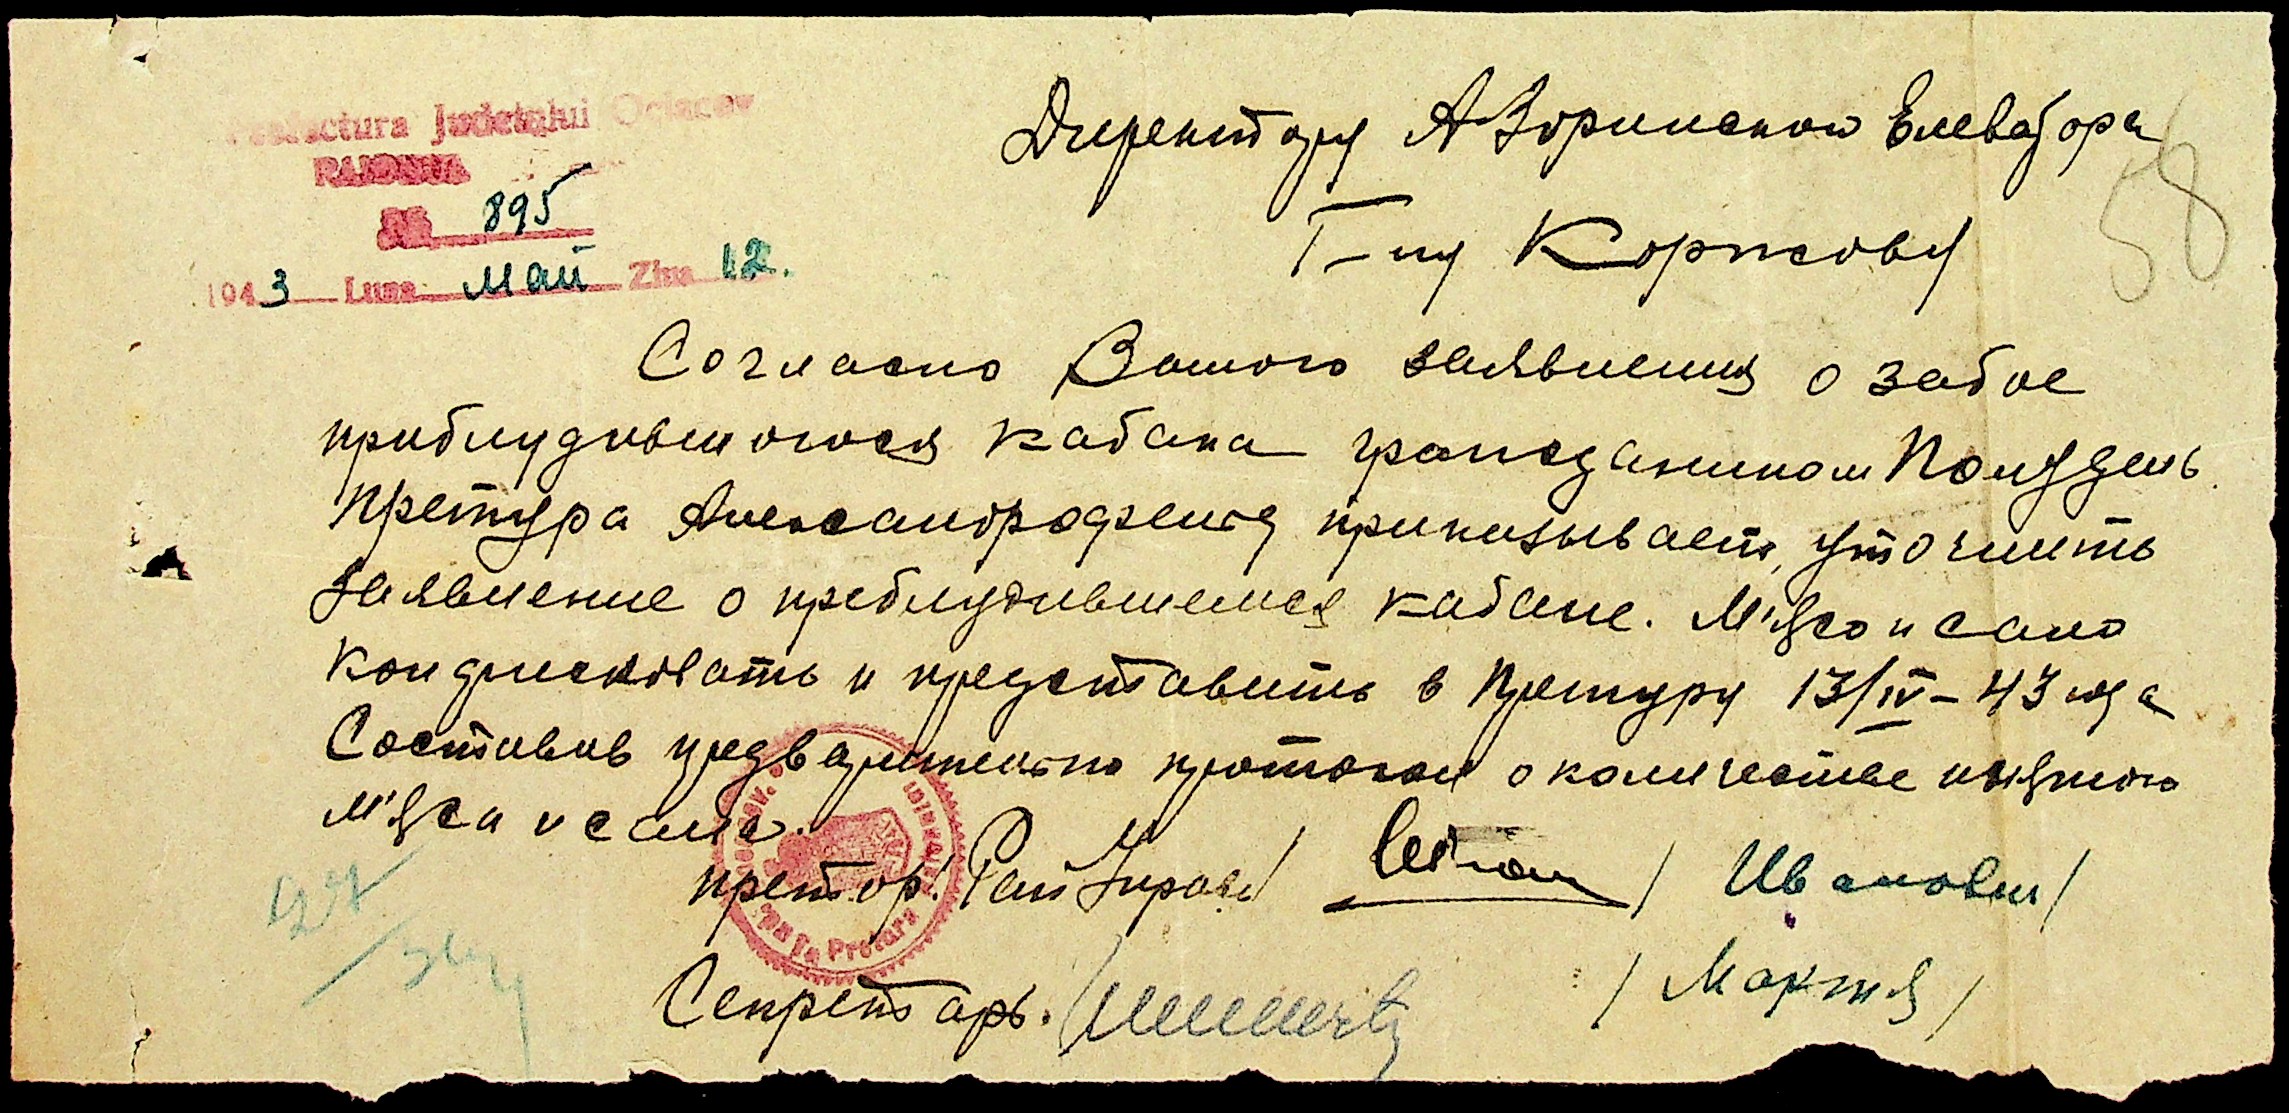 Prefectura Județului Oceacov
RAIONUL
№ 895
1943 Luna Май Ziua 12.
58
Директору А Зоринской Елеватора
Г-ну Коржову
Согласно Вашого заявления о забое
приблудившогося кабана гражданином Полудень
Претура Александродреша приказывает, уточнить
Заявление о приблудившемся кабане. М'ясо и сало
конфисковать и представить в Претуру 13/IV-43 года
Составив предварительно протокол о количестве изъятого
м'яса и сала.
претор. / Иванович /
Pretura
Секретарь. / Маржия /